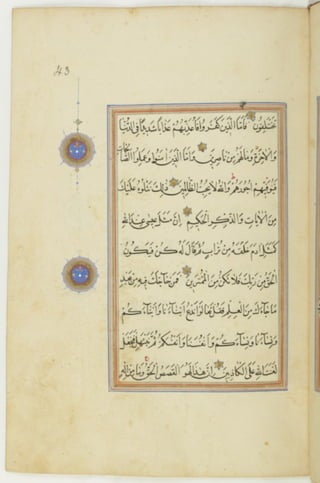 43
تختلفون فاما الذين كفروا فاعذبهم عذابا شديدا في الدنيا
والاخرة وما لهم من ناصرين واما الذين امنوا وعملوا الصالحات
فيوفيهم اجورهم والله لا يحب الظالمين ذلك نتلوه عليك
من الايات والذكر الحكيم ان مثل عيسى عند الله
كمثل ادم خلقه من تراب ثم قال له كن فيكون
الحق من ربك فلا تكن من الممترين فمن حاجك فيه من بعد
ما جاءك من العلم فقل تعالوا ندع ابناءنا وابناءكم
ونساءنا ونساءكم وانفسنا وانفسكم ثم نبتهل فنجعل
لعنة الله على الكاذبين ان هذا لهو القصص الحق وما من اله